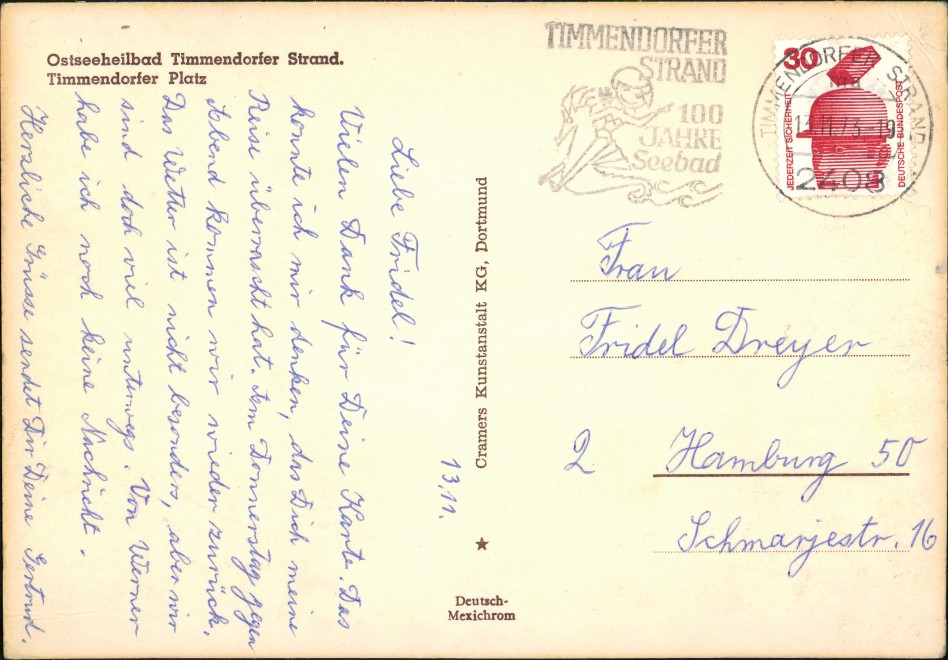 Ostseeheilbad Timmendorfer Strand.
Timmendorfer Platz
13.11.
Liebe Fridel!
Vielen Dank für Deine Karte. Das
konnte ich mir denken, das Dich meine
Reise überrascht hat. Am Donnerstag gegen
Abend kommen wir wieder zurück.
Das Wetter ist nicht besonders, aber wir
sind doch viel unterwegs. Von Werner
habe ich noch keine Nachricht.
Herzliche Grüsse sendet Dir Deine Gertrud.
Cramers Kunstanstalt KG, Dortmund
Deutsch-
Mexichrom
TIMMENDORFER
STRAND
100
JAHRE
Seebad
30
JEDERZEIT SICHERHEIT
DEUTSCHE BUNDESPOST
TIMMENDORFER STRAND
13.11.73-19
2408
Frau
Fridel Dreyer
2 Hamburg 50
Schmarjestr. 16